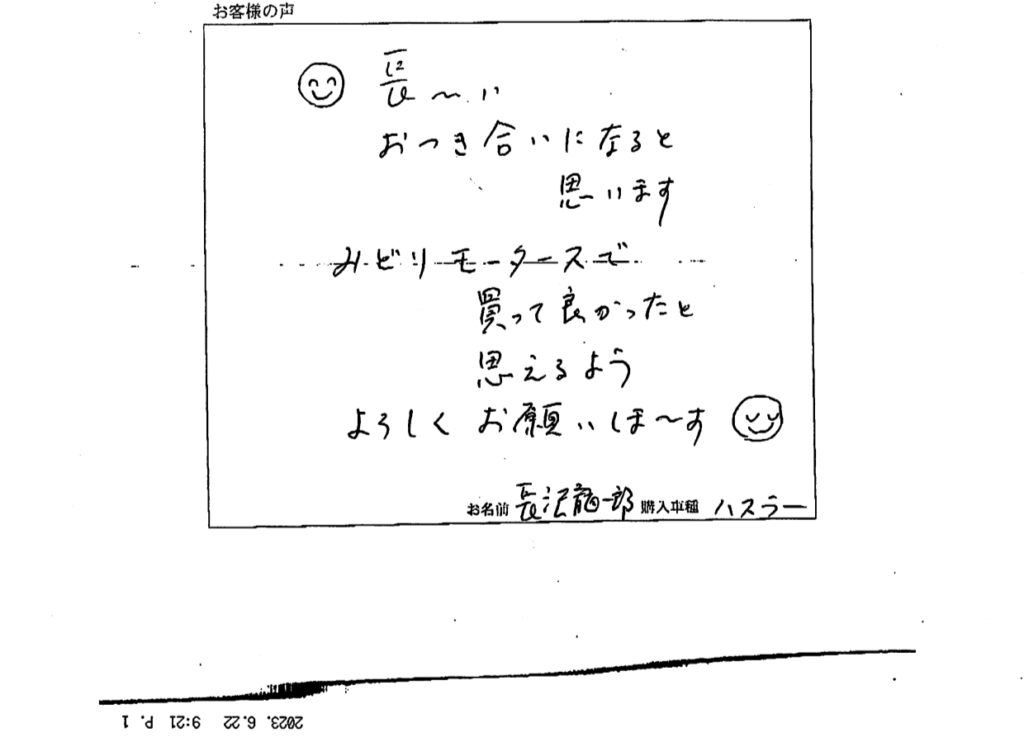 お客様の声
長～い
おつき合いになると
思います
みどりモータースで
買って良かったと
思えるよう
よろしくお願いしま～す
お名前 長沢龍一郎 購入車種 ハスラー
2023. 6.22 9:21 P. 1